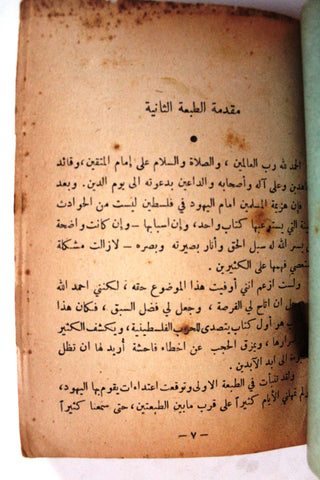 مقدمة الطبعة الثانية
الحمد لله رب العالمين ، والصلاة والسلام على إمام المتقين ، وقائد
وعلى آله وأصحابه والداعين بدعوته الى يوم الدين . وبعد
فإن هزيمة المسلمين امام اليهود في فلسطين ليست من الحوادث
التي يستوعبها كتاب واحد ، وإن اسبابها – وإن كانت واضحة
يسر الله له سبيل الحق وأنار بصيرته وبصره – لازالت مشكلة
فهمها على الكثيرين .
ولست ازعم أنني أوفيت هذا الموضوع حقه ، لكنني احمد الله
ان اتاح لي الفرصة ، وجعل لي فضل السبق ، فكان هذا
هو أول كتاب يتصدى للحرب الفلسطينية ، ويكشف الكثير
أسرارها ، ويمزق الحجب عن أخطاء فاحشة أريد لها ان تظل
الى ابد الآبدين .
ولقد تنبأت في الطبعة الاولى وتوقعت اعتداءات يقوم بها اليهود،
ولم تمهلني الأيام كثيراً على قرب مابين الطبعتين، حتى سمعنا كثيراً
– ٧ –